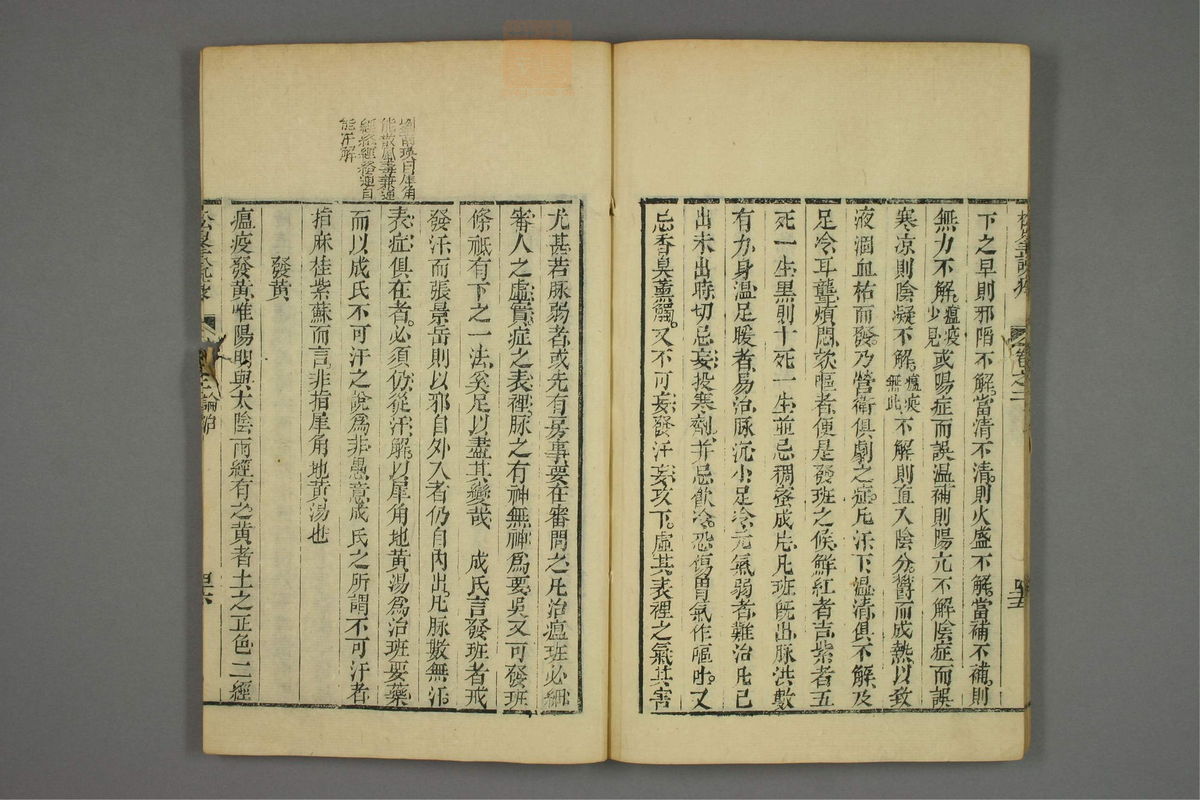 松峯說疫
卷之二
四十五
下之早則邪陷不解當清不清則火盛不解當補不補則
無力不解瘟疫少見或陽症而誤温補則陽亢不解陰症而誤
寒凉則陰凝不解瘟疫無此不解則直入陰分鬱而成熱以致
液涸血枯而發乃營衛俱劇之症凡汗下温清俱不解及
足冷耳聾煩悶欬嘔者便是發班之候鮮紅者吉紫者五
死一生黑則十死一生並忌稠蜜成片凡班既出脉洪數
有力身温足暖者易治脉沉小足冷元氣弱者難治凡已
出未出時切忌妄投寒劑并忌飲冷恐傷胃氣作嘔吐又
忌香臭薰觸又不可妄發汗妄攻下虛其表裡之氣其害
尤甚若脉弱者或先有房事要在審問之凡治瘟班必細
審人之虛實症之表裡脉之有神無神爲要吳又可發班
條祗有下之一法奚足以盡其變哉　成氏言發班者戒
發汗而張景岳則以邪自外入者仍自內出凡脉數無汗
表症俱在者必須仍從汗解以犀角地黃湯爲治班要藥
而以成氏不可汗之說爲非愚意成氏之所謂不可汗者
指麻桂紫蘇而言非指犀角地黃湯也
發黃
瘟疫發黃唯陽明與太陰兩經有之黃者土之正色二經
曰犀角
能散風毒兼通
經絡經絡通自
能汗解
松峯說疫
卷之二
論治
四十六